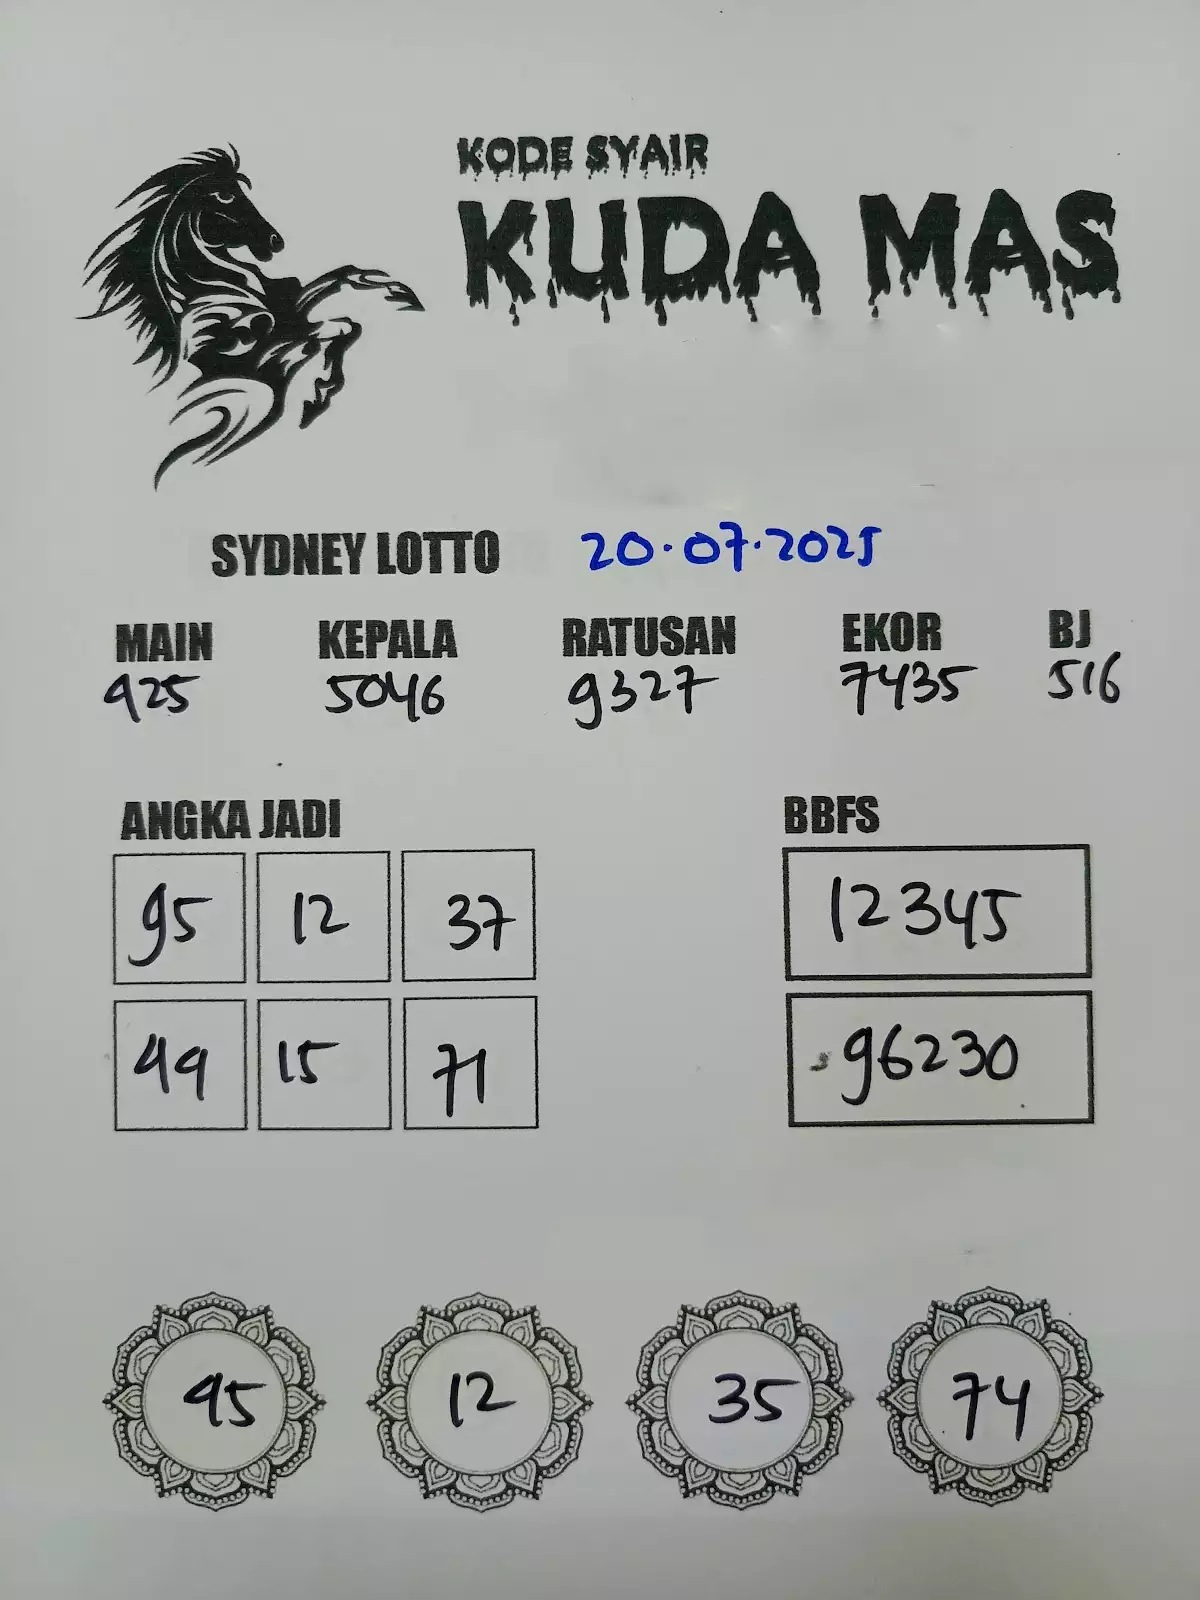 KODE SYAIR
KUDA MAS
SYDNEY LOTTO 20.07.2025
MAIN KEPALA RATUSAN EKOR BJ
925 5046 9327 7435 516
ANGKA JADI BBFS
95 12 37 12345
49 15 71 96230
95 12 35 74